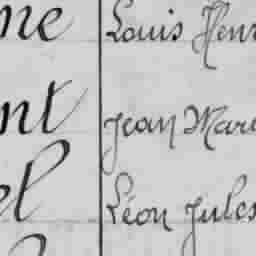 me Louis Henr
nt Jean Mar
el Léon Jules